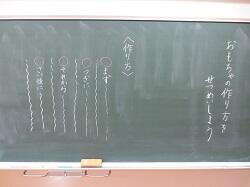 おもちゃの作り方を
せつめいしよう
〈作り方〉
まず
つぎに
それから
さい後に